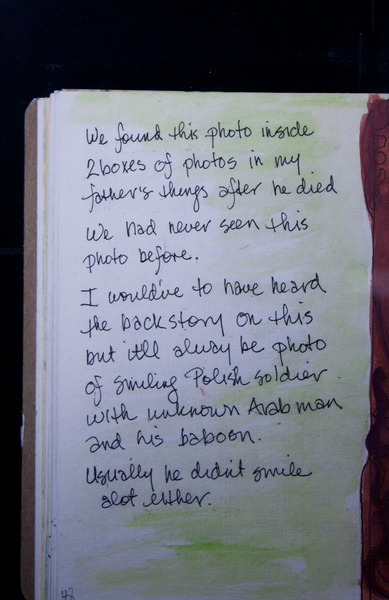 We found this photo inside
2 boxes of photos in my
father's things after he died
We had never seen this
photo before.
I would've to have heard
the backstory on this
but it'll alway be photo
of smiling Polish soldier
with unknown Arab man
and his baboon.
Usually he didn't smile
alot either.
48